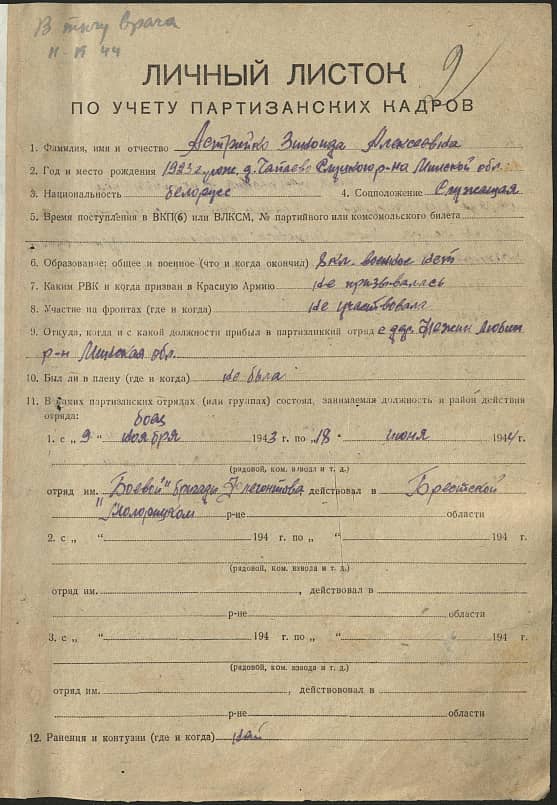 В тылу врага
11-IV 44
2
ЛИЧНЫЙ ЛИСТОК
ПО УЧЕТУ ПАРТИЗАНСКИХ КАДРОВ
1. Фамилия, имя и отчество Астрейко Зинаида Алексеевна
2. Год и место рождения 1923 г. рожд. д. Чапаево Слуцкого р-на Минской обл.
3. Национальность белорусс 4. Соцположение Служащая
5. Время поступления в ВКП(б) или ВЛКСМ, № партийного или комсомольского билета
6. Образование: общее и военное (что и когда окончил) 8 кл. военное нет
7. Каким РВК и когда призван в Красную Армию не призывалась
8. Участие на фронтах (где и когда) не участвовала
9. Откуда, когда и с какой должности прибыл в партизанский отряд с дер. Нежин Любан
р-н Минская обл.
10. Был ли в плену (где и когда) не была
11. В каких партизанских отрядах (или группах) состоял, занимаемая должность и район действия
отряда: боец
1. с „ 9 “ ноября 1943 г. по „ 18 “ июня 1944 г.
(рядовой, ком. взвода и т. д.)
отряд им. "Боевой" бригады Флегонтова действовал в Брестской
"Малоритском р-не области
2. с „ “ 194 г. по „ “ 194 г.
(рядовой, ком. взвода и т. д.)
отряд им. , действовал в
р-не области
3. с „ “ 194 г. по „ “ 194 г.
(рядовой, ком. взвода и т. д.)
отряд им. , действововал в
р-не области
12. Ранения и контузии (где и когда) нет